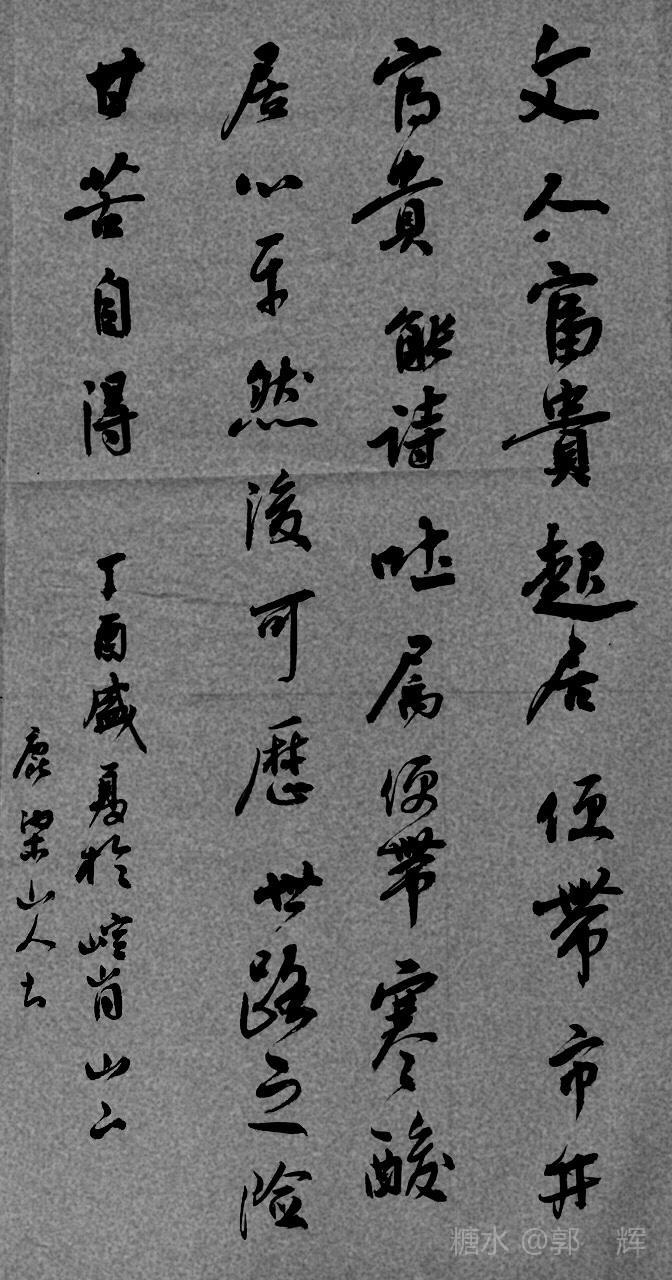 文人富貴起居便帶市井
富貴能詩吐属便帶寒酸
居心平然後可歷世路之險
甘苦自得
丁酉盛夏於崆肖山
山人
糖水 @郭 辉